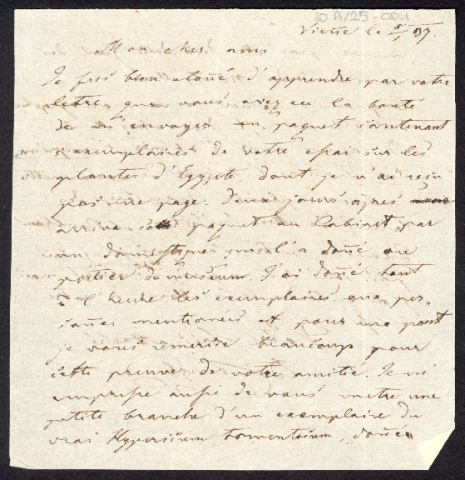 10.A/25-004
Vieñe le 5/ 97.
Mon cher ami
Je fus bien etoñé d'apprendre par votre
lettre que vous avez eu la bonté
de m envoyer un paquet contenant
exemplaires de votre essai sur les
plantes d'Egypte dont je n'ai reçu
pas une page. Deux jours apres
arriva le paquet au Cabinet par
un domestique qui l'a doñé au
portier du museum. J'ai doñé tout
à l'heure les exemplaires aux per-
soñes mentionées et pour une part
je vous remercie beaucoup pour
cette preuve de votre amitié. Je m'
empresse aussi de vous metre une
petite branche d'un exemplaire du
vrai Hypericum tomentosum, doñée